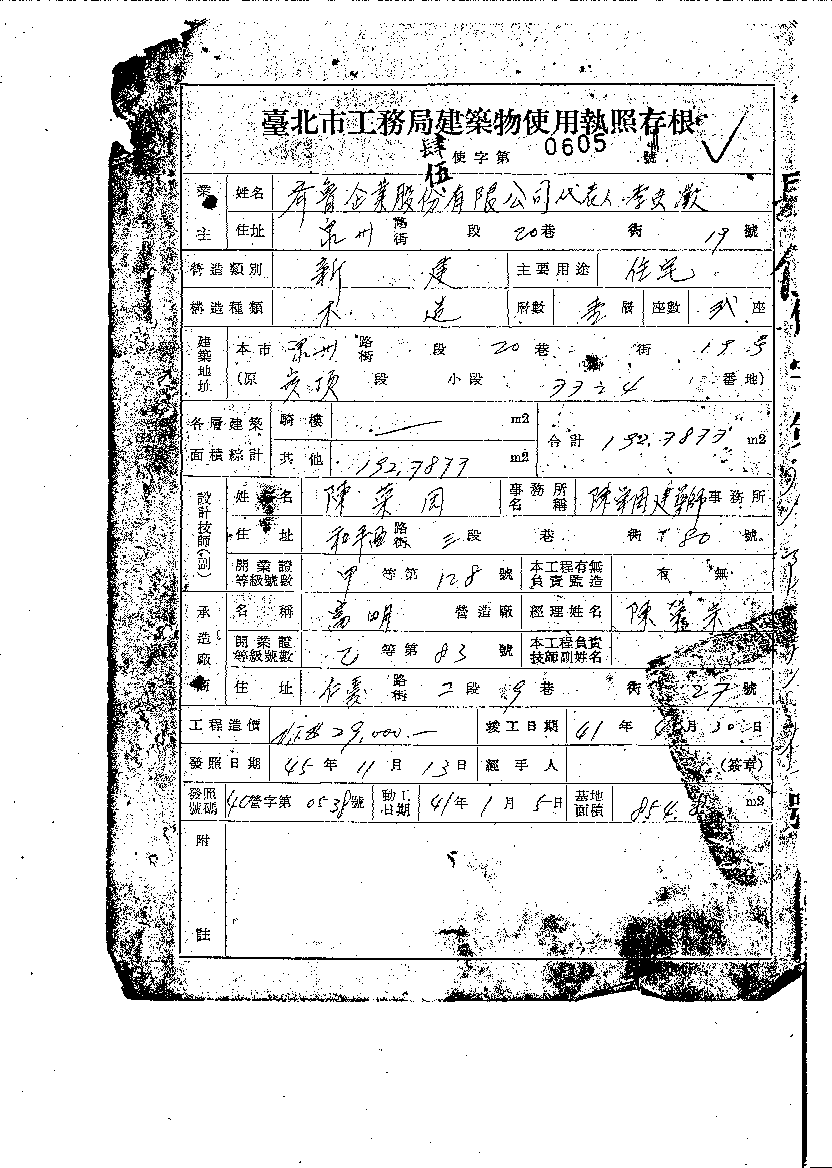 臺北市工務局建築物使用執照存根
肆伍使字第0605號
業主 姓名 齊魯企業股份有限公司代表人李
住址 泉州 路街 段 20巷 街 19號
營造類別 新建 主要用途 住宅
構造種類 木造 層數 壹層 座數 弍座
建築地址 本市 泉州 路街 段 20巷 街 19號
(原 段 小段 33 番地)
各層建築面積綜計 騎樓 — m2 合計 152.3873 m2
其他 152.3873 m2
設計技師(副) 姓名 陳榮周 事務所名稱 陳榮周建築師事務所
住址 和平西 路街 三段 巷 街 80號
開業證等級號數 甲等第128號 本工程有無負責監造 有 無
承造廠商 名稱 高明 營造廠 經理姓名 陳
開業證等級號數 乙等第83號 本工程負責技師副姓名
住址 路街 二段 9巷 街 27號
工程造價 29,000.— 竣工日期 41年4月30日
發照日期 45年11月13日 經手人 (簽章)
發照號碼 40營字第0538號 動工日期 41年1月5日 基地面積 854. m2
附註